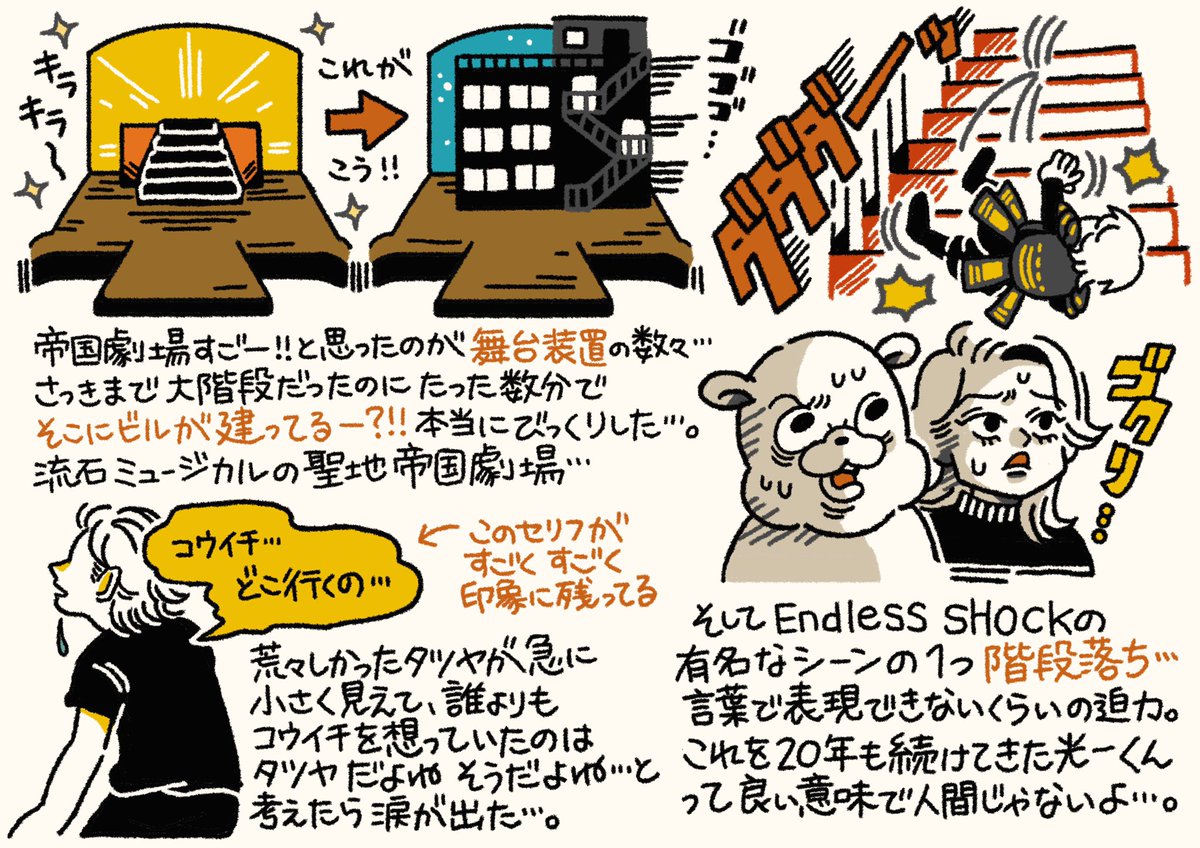 キラキラ〜
これが
こう!!
ゴゴゴ…
帝国劇場すごー!!と思ったのが舞台装置の数々…
さっきまで大階段だったのにたった数分で
そこにビルが建ってるー?!!本当にびっくりした…。
流石ミュージカルの聖地帝国劇場…
コウイチ…
どこ行くの…
このセリフが
すごくすごく
印象に残ってる
荒々しかったタツヤが急に
小さく見えて、誰よりも
コウイチを想っていたのは
タツヤだよねそうだよね…と
考えたら涙が出た…。
ダダダダンッ
ゴクリ…
そしてEndless SHOCKの
有名なシーンの1つ階段落ち…
言葉で表現できないくらいの迫力。
これを20年も続けてきた光一くん
って良い意味で人間じゃないよ…。